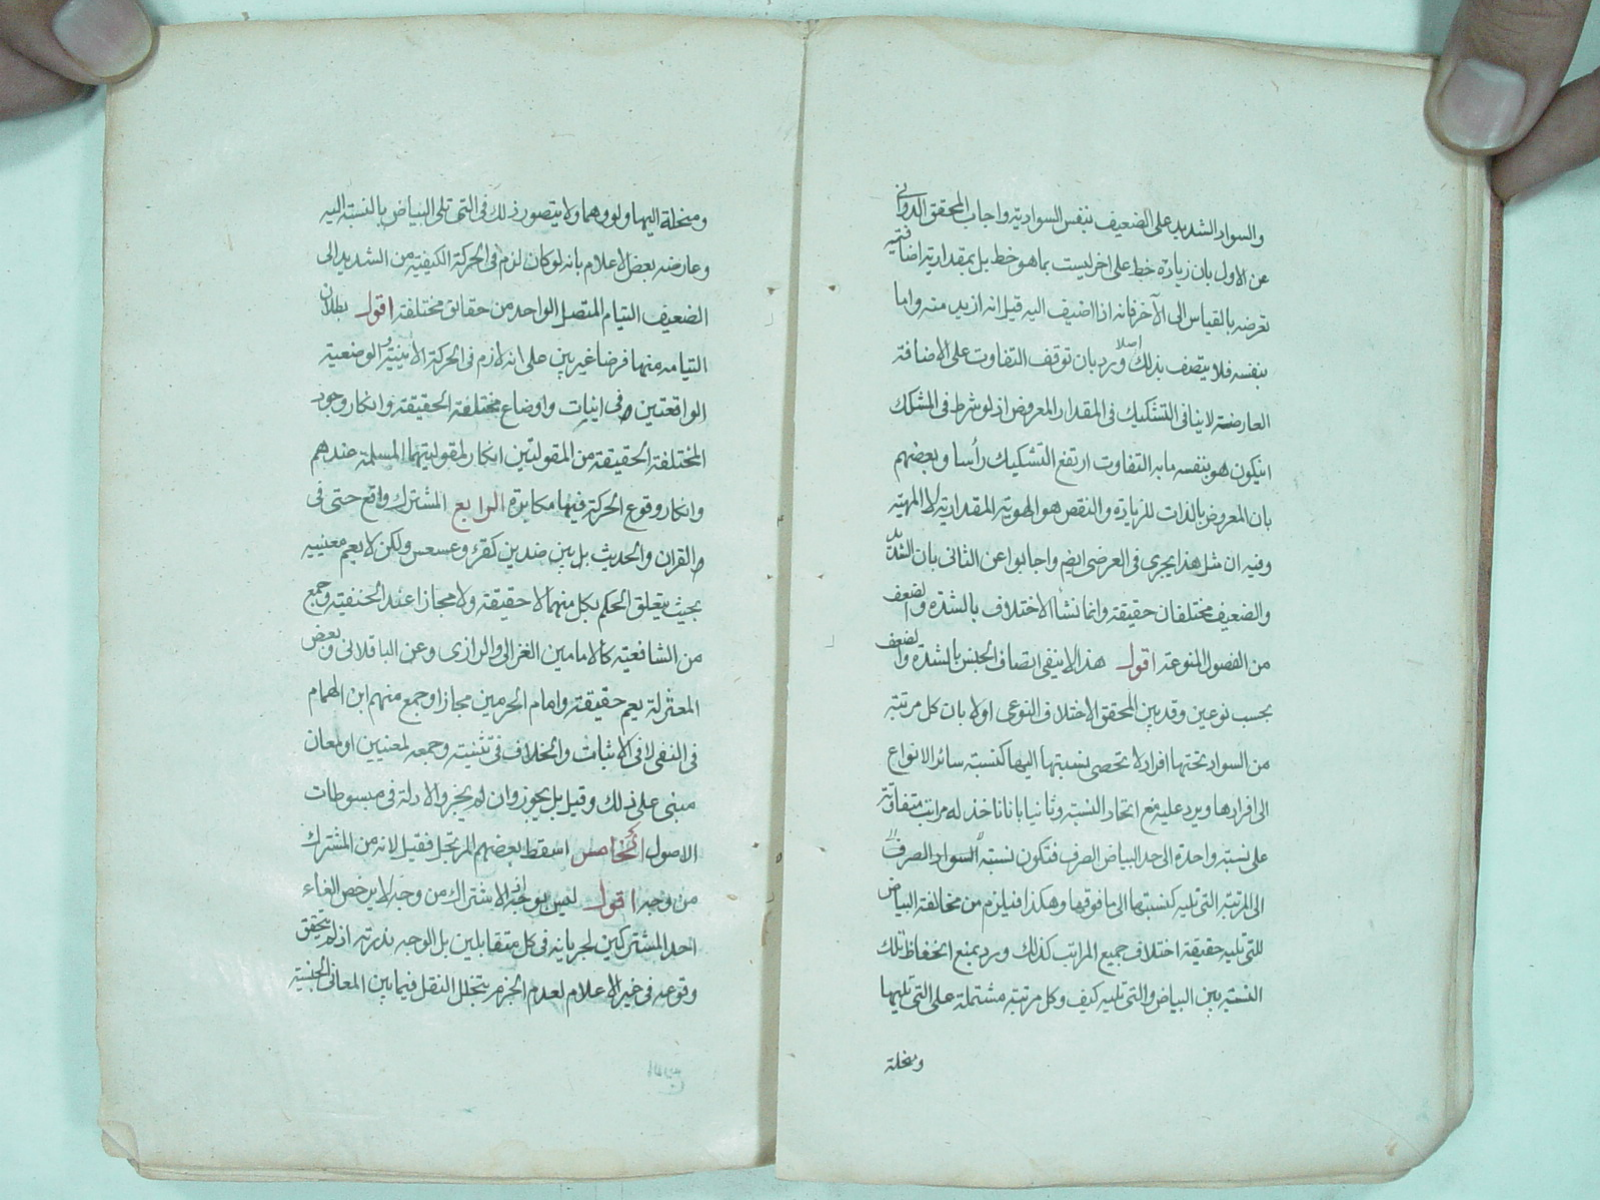 والسواد الشديد على الضعيف بنفس السوادية واجاب المحقق الدواني
عن الاول بان زيادة خط على اخر ليست بما هو خط بل بمقدارية اضافية
تعرضه بالقياس الى الآخر فانه اذا اضيف اليه قيل انه ازيد منه واما
بنفسه فلا يتصف بذلك اصلا ويرد بان توقف التفاوت على الاضافة
العارضة لا ينافى التشكيك فى المقدار المعروض اذ لو شرط فى المشكك
ان يكون هو بنفسه ما به التفاوت ارتفع التشكيك رأسا وبعضهم
بان المعروض بالذات للزيادة والنقص هو الهوية المقدارية لا المهية
وفيه ان مثل هذا يجرى فى العرضى ايضا واجابوا عن الثانى بان الشديد
والضعيف مختلفان حقيقة وانما نشأ الاختلاف بالشدة والضعف
من الفصول المنوعة اقول هذا لا ينفى اتصاف الجنس بالشدة والضعف
بحسب نوعين وقد بين المحقق الاختلاف النوعى اولا بان كل مرتبة
من السواد تحتها افراد لا تحصى نسبتها اليها كنسبة سائر الانواع
الى افرادها ويرد عليه مع اتحاد النسبة وثانيا باناناخذ له مراتب متفاوتة
على نسبة واحدة الى حد البياض الصرف فتكون نسبة السواد الصرف
الى المرتبة التى تليه كنسبتها الى ما فوقها وهكذا فيلزم من مخالفة البياض
للتى تليه حقيقة اختلاف جميع المراتب كذلك ويرد بمنع انحفاظ تلك
النسبة بين البياض والتى تليه كيف وكل مرتبة مشتملة على التى تليها
ومنحلة
ومنحلة اليها ولو وهما ولا يتصور ذلك فى التى تلى البياض بالنسبة اليه
وعارضه بعض الاعلام بانه لو كان لزم فى الحركة الكيفية من الشديد الى
الضعيف التيام المتصل الواحد من حقائق مختلفة اقول بطلان
التيامه منها فرضا غير بين على انه لازم فى الحركة الاينية والوضعية
الواقعتين فى اينات واوضاع مختلفة الحقيقة وانكار وجود
المختلفة الحقيقة من المقولتين انكار لمقوليتهما المسلمة عندهم
وانكار وقوع الحركة فيها مكابرة الرابع المشترك واقع حتى فى
القران والحديث بل بين ضدين كقرء وعسعس ولكن لا يعم معنييه
بحيث يتعلق الحكم بكل منهما لا حقيقة ولا مجازا عند الحنفية وجمع
من الشافعية كالامامين الغزالى والرازى وعن الباقلانى وبعض
المعتزلة يعم حقيقة وامام الحرمين مجازا وجمع منهم ابن الهمام
فى النفى لا فى الاثبات والخلاف فى تثنيته وجمعه لمعنيين او لمعان
مبنى على ذلك وقيل بل يجوز وان لم يجز والادلة فى مبسوطات
الاصول الخامس اسقط بعضهم المرتجل فقيل لانه من المشترك
من وجه اقول ليس بوجه اذ الاشتراك من وجه لا يرخص الغاء
احد المشتركين لجريانه فى كل متقابلين بل الوجه ندرته اذ لم يتحقق
وقوعه فى غير الاعلام لعدم الجزم بتخلل النقل فيما بين المعانى الجنسية